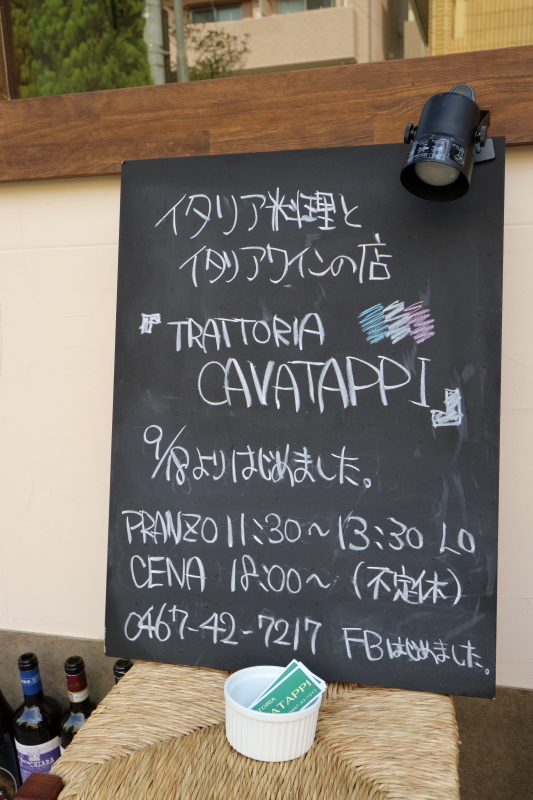 イタリア料理と
イタリアワインの店
『TRATTORIA
CAVATAPPI』
9/18よりはじめました。
PRANZO 11:30～13:30 LO
CENA 18:00～ (不定休)
0467-42-7217 FBはじめました。
CHIARA
ATAPPI